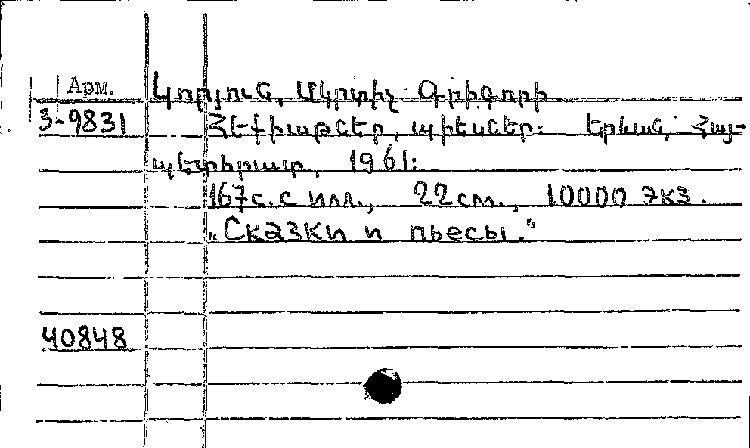 Арм. Կորյուն, Մկրտիչ Գրիգորի
3-9831 Հեքիաթներ, պիեսներ: Երևան, Հայ-
պետհրատ, 1961:
167с. с илл., 22см., 10000 экз.
„Сказки и пьесы."
40848